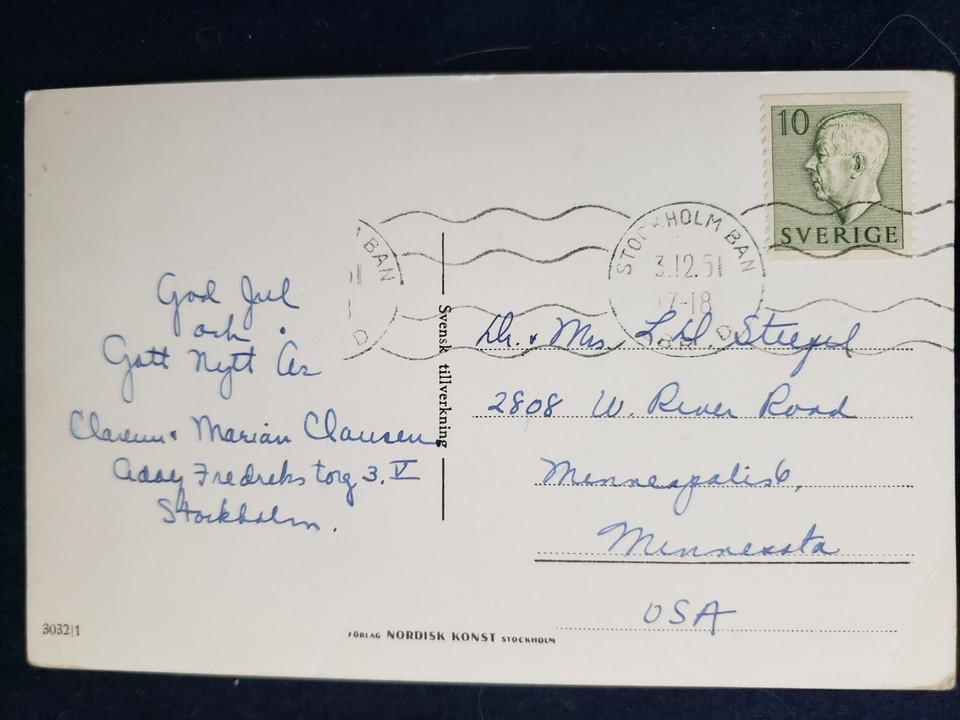 10
SVERIGE
STOCKHOLM BAN
3.12.51
17-18
BAN
D
God Jul
och
Gott Nytt År
Marian Clausen
Fredriks torg 3, V
Stockholm.
Svensk tillverkning
Dr. & Mrs. L. D. Steefel
2808 W. River Road
Minneapolis 6,
Minnesota
USA
3032|1
FÖRLAG NORDISK KONST STOCKHOLM